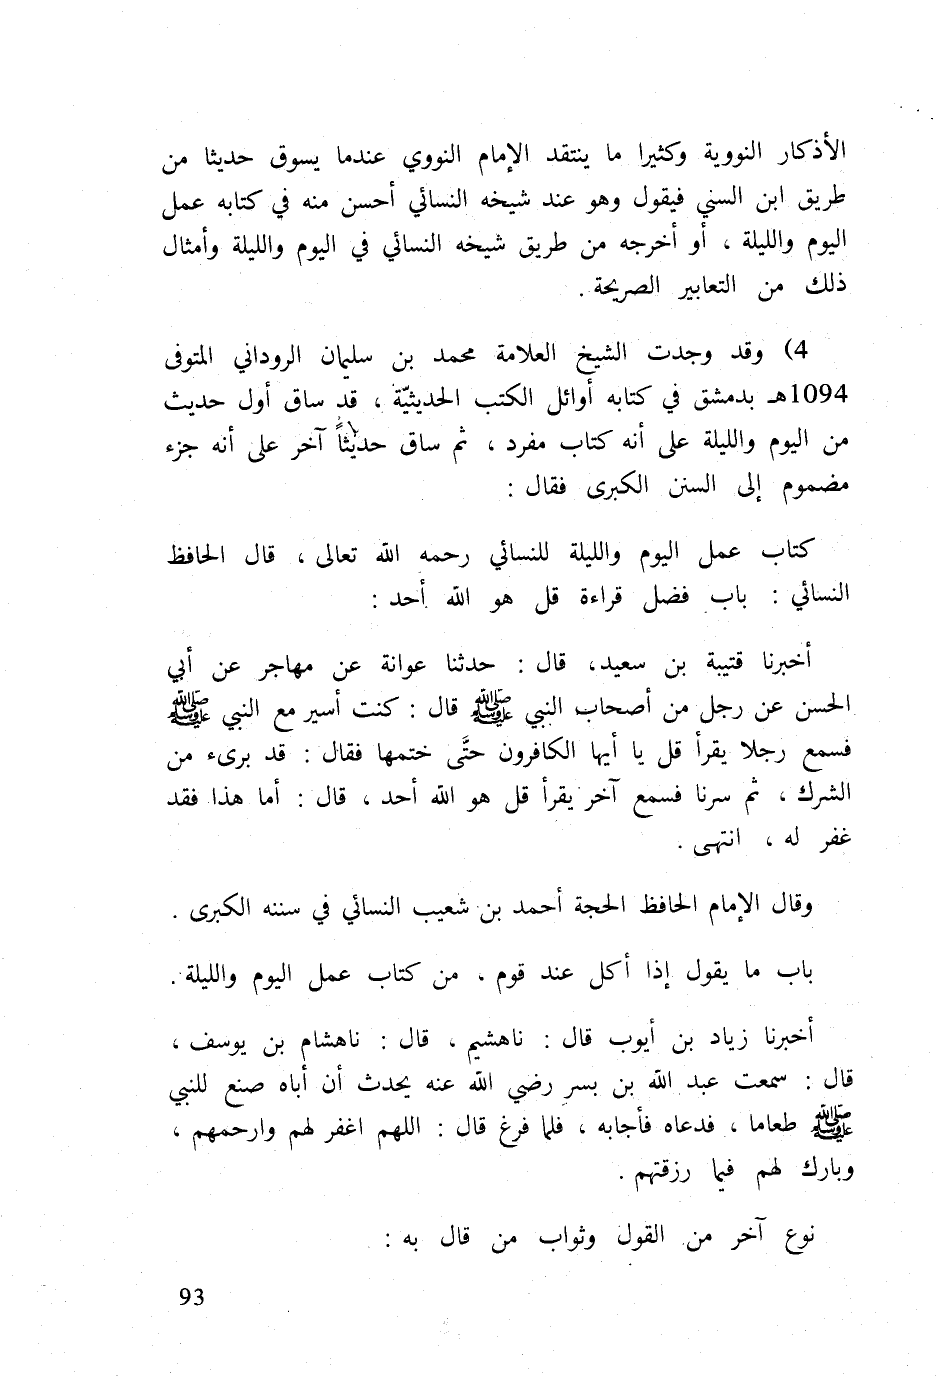 الأذكار النووية وكثيرا ما ينتقد الإمام النووي عندما يسوق حديثا من
طريق ابن السني فيقول وهو عند شيخه النسائي أحسن منه في كتابه عمل
اليوم والليلة ، أو أخرجه من طريق شيخه النسائي في اليوم والليلة وأمثال
ذلك من التعابير الصريحة .
4) وقد وجدت الشيخ العلامة محمد بن سليمان الروداني المتوفى
1094هـ بدمشق في كتابه أوائل الكتب الحديثيّة ، قد ساق أول حديث
من اليوم والليلة على أنه كتاب مفرد ، ثم ساق حديثاً آخر على أنه جزء
مضموم إلى السنن الكبرى فقال :
كتاب عمل اليوم والليلة للنسائي رحمه الله تعالى ، قال الحافظ
النسائي : باب فضل قراءة قل هو الله أحد :
أخبرنا قتيبة بن سعيد، قال : حدثنا عوانة عن مهاجر عن أبي
الحسن عن رجل من أصحاب النبي ﷺ قال : كنت أسير مع النبي ﷺ
فسمع رجلا يقرأ قل يا أيها الكافرون حتَّى ختمها فقال : قد برىء من
الشرك ، ثم سرنا فسمع آخر يقرأ قل هو الله أحد ، قال : أما هذا فقد
غفر له ، انتهى .
وقال الإمام الحافظ الحجة أحمد بن شعيب النسائي في سننه الكبرى .
باب ما يقول إذا أكل عند قوم . من كتاب عمل اليوم والليلة .
أخبرنا زياد بن أيوب قال : ناهشيم ، قال : ناهشام بن يوسف ،
قال : سمعت عبد الله بن بسر رضي الله عنه يحدث أن أباه صنع للنبي
ﷺ طعاما ، فدعاه فأجابه ، فلما فرغ قال : اللهم اغفر لهم وارحمهم ،
وبارك لهم فيما رزقتهم .
نوع آخر من القول وثواب من قال به :
93